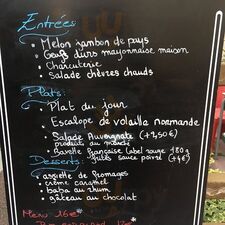 Entrées
• Melon jambon de pays
• Oeufs durs mayonnaise maison
• Charcuterie
• Salade chèvres chauds
Plats:
• Plat du jour
• Escalope de volaille normande
• Salade Auvergnate (+3,50€)
produits du marché
• Bavette française Label rouge 180g
frites sauce poivre (+4€)
Desserts:
• assiette de fromages
• crème caramel
• baba au rhum
• gâteau au chocolat
Menu 16€*